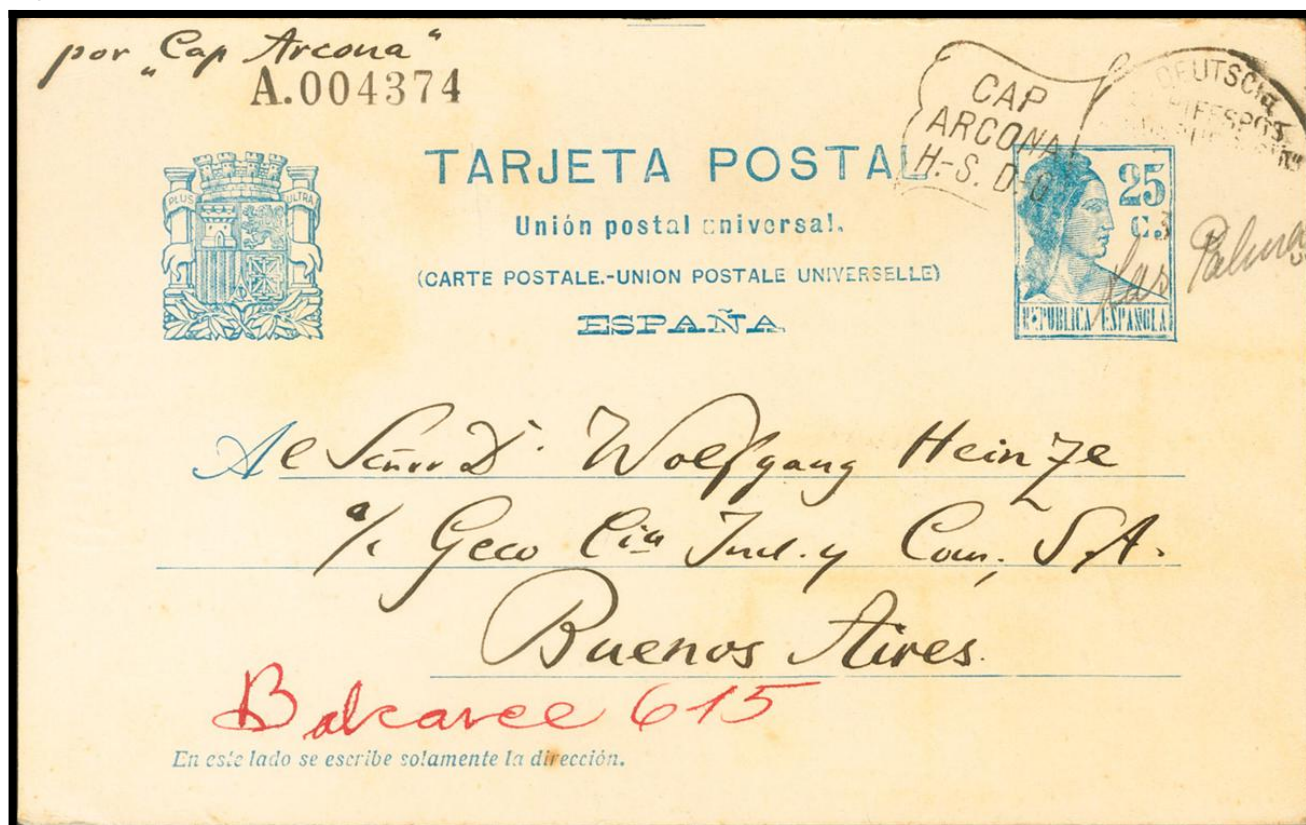 por "Cap Arcona"
A.004374
CAP
ARCONA
H.-S. D-G
DEUTSCHE
PLUS ULTRA
TARJETA POSTAL
Unión postal universal.
(CARTE POSTALE.-UNION POSTALE UNIVERSELLE)
ESPAÑA
25
Cs
REPUBLICA ESPAÑOLA
Las Palmas
Al Señor D. Wolfgang Heinze
a/c Geco Cia Ind. y Com, S.A.
Buenos Aires.
Balcarce 615
En este lado se escribe solamente la dirección.